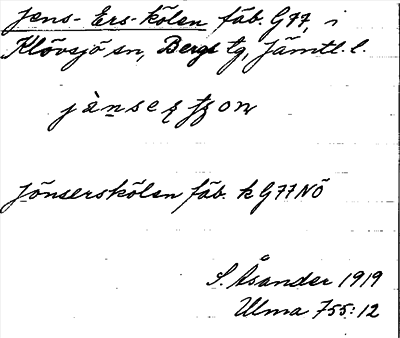 Jens-Ers-kölen fäb. G77, i
Klövsjö sn, Bergs tg, Jämtl. l.
Jönserskölen fäb. k G77NÖ
S. Åsander 1919
Ulma 755:12